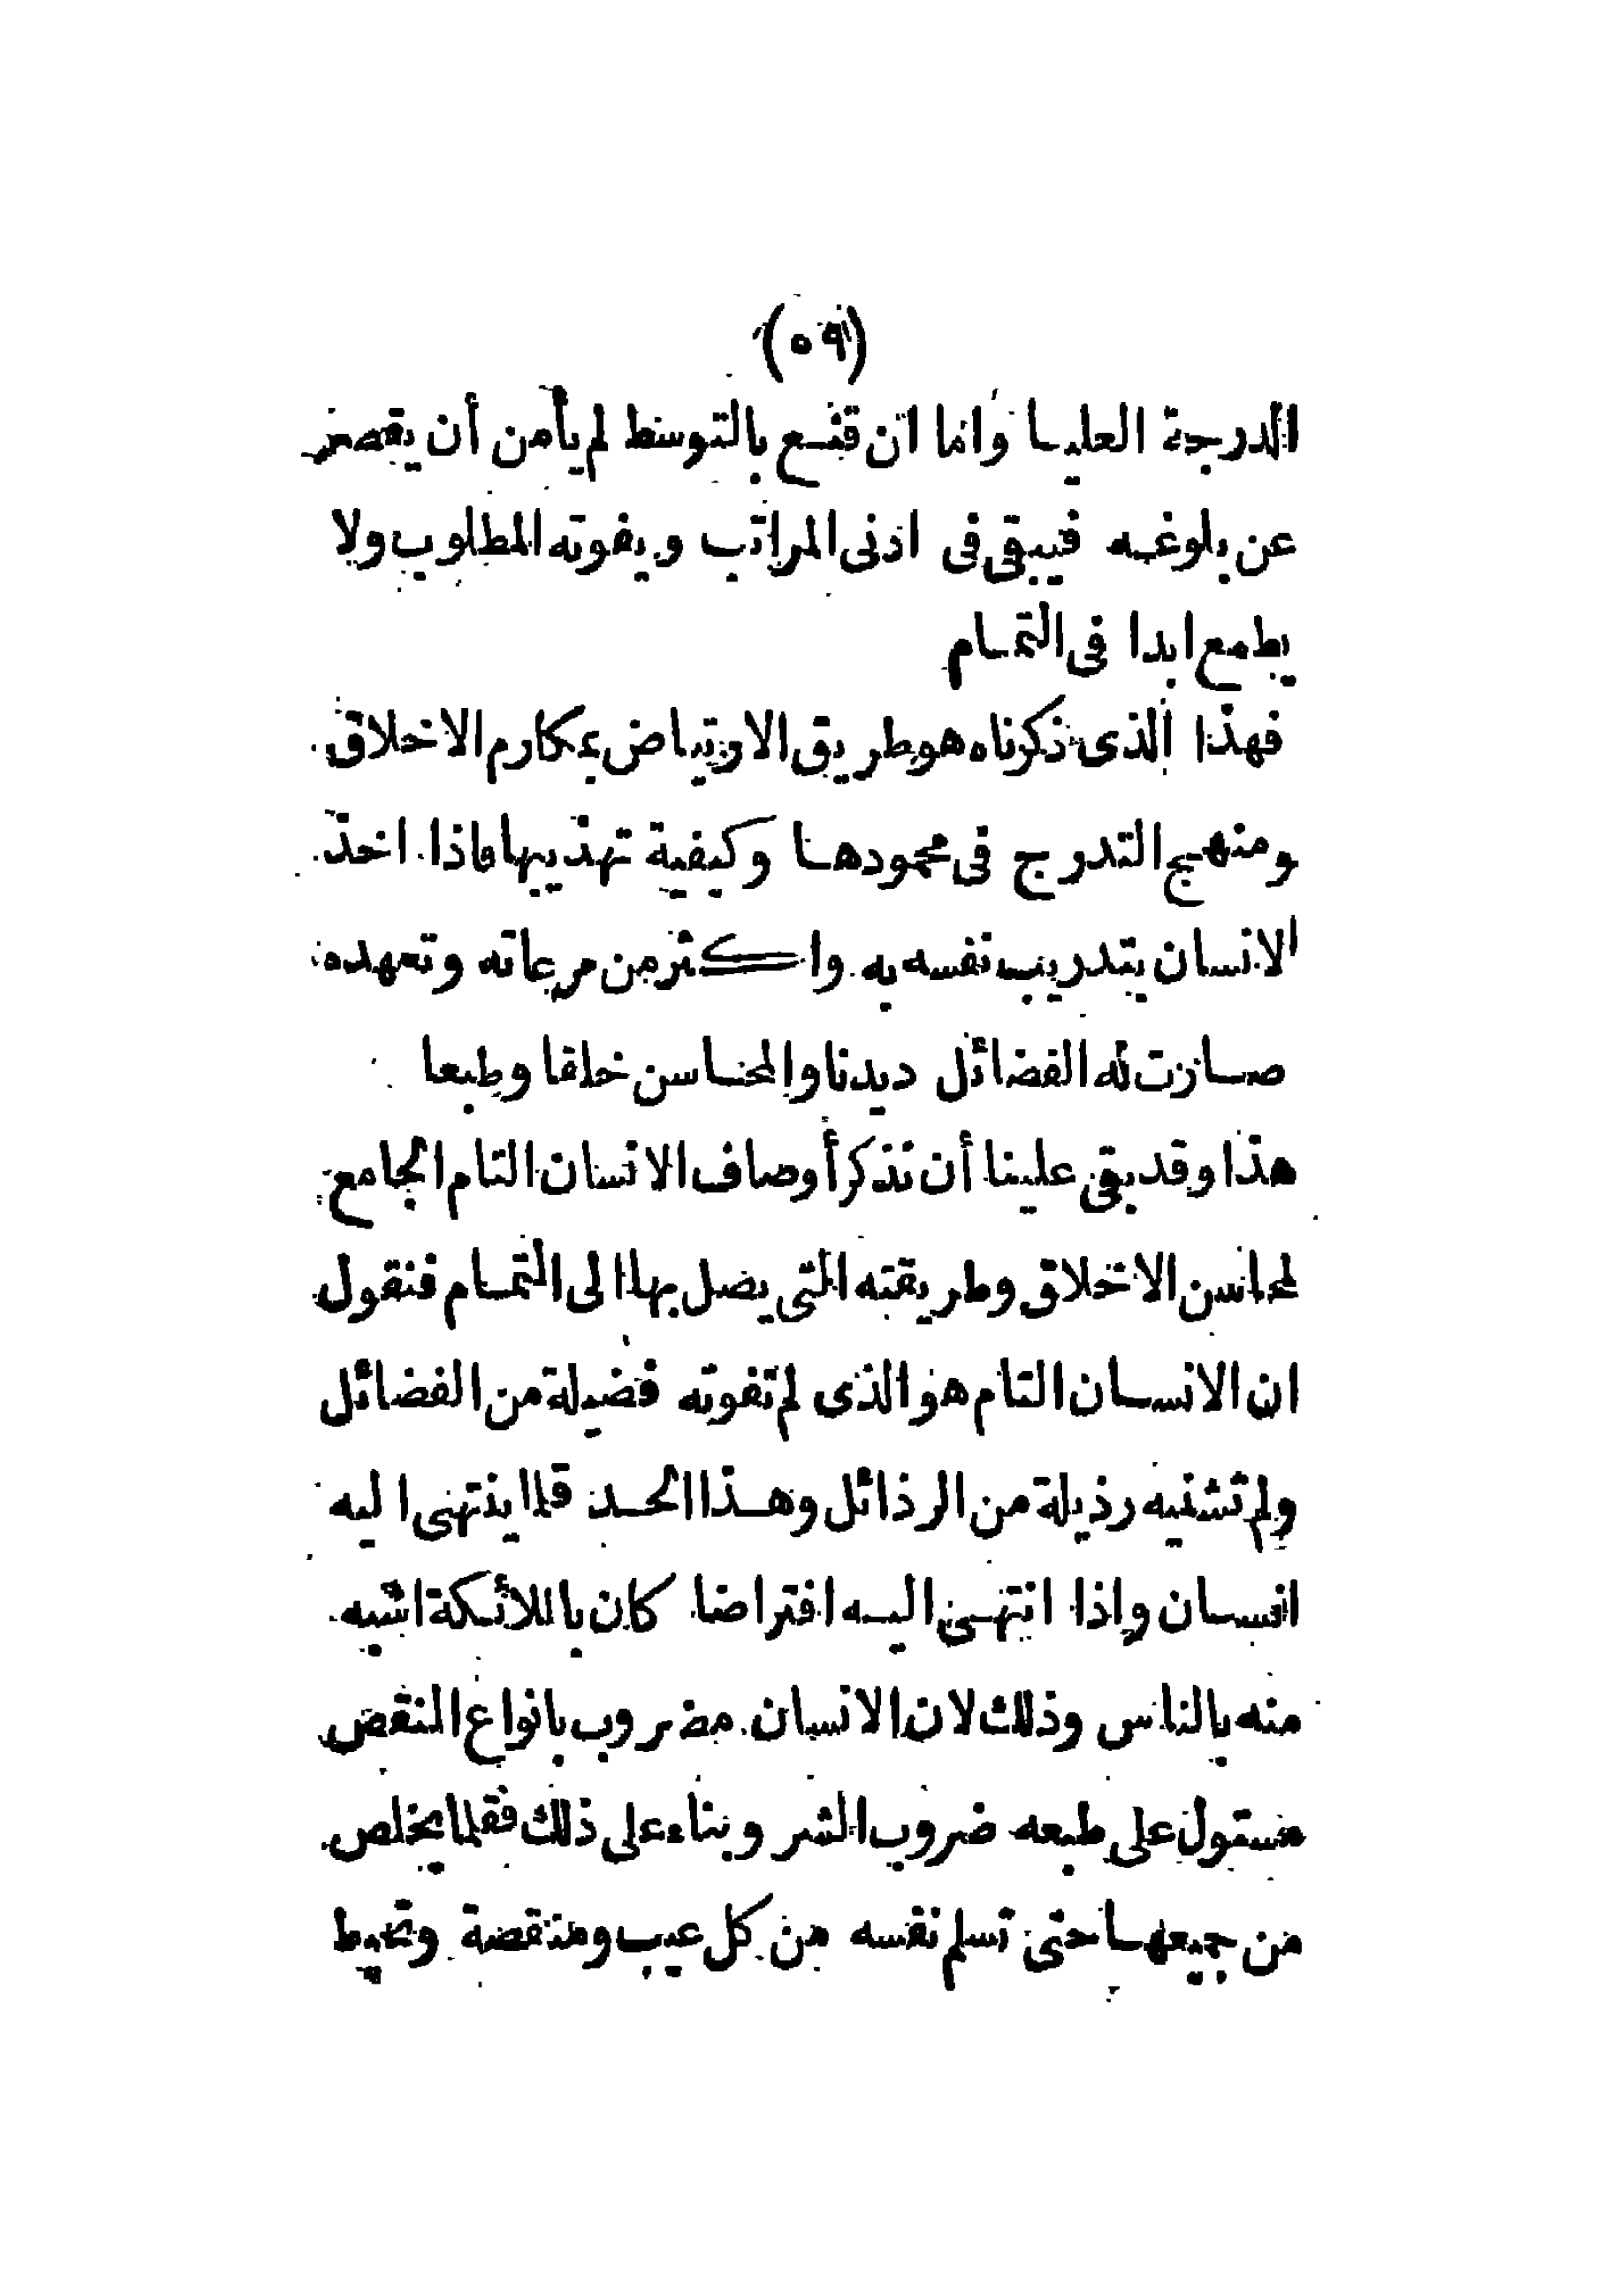 (٥٩)
الدرجة العليا واما ان قنع بالتوسط لم يأمن أن يقصر
عن بلوغه فيبقى فى ادنى المراتب ويفوته المطلوب ولا
يطمع ابدا فى التمام
فهذا الذى ذكرناه هو طريق الارتياض بمكارم الاخلاق
ومنهج التدرج فى محمودها وكيفية تهذيبها فاذا اخذ
الانسان بتدريب نفسه به واكثر من مرعاته وتعهده
صارت له الفضائل ديدنا والمحاسن خلقا وطبعا
هذا وقد بقى علينا أن نذكر أوصاف الانسان التام الجامع
لمحاسن الاخلاق وطريقته التى يصل بها الى التمام فنقول
ان الانسان التام هو الذى لم تفوته فضيلة من الفضائل
ولم تشنيه رذيلة من الرذائل وهذا الحد قلما ينتهى اليه
انسان واذا انتهى اليه افتراضا كان بالملائكة اشبه
منه بالناس وذلك لان الانسان مضروب بانواع النقص
مستول على طبعه ضروب الشر وبناء على ذلك فقلما يخلص
من جميعها حتى تسلم نفسه من كل عيب ومنقصة وتحيط